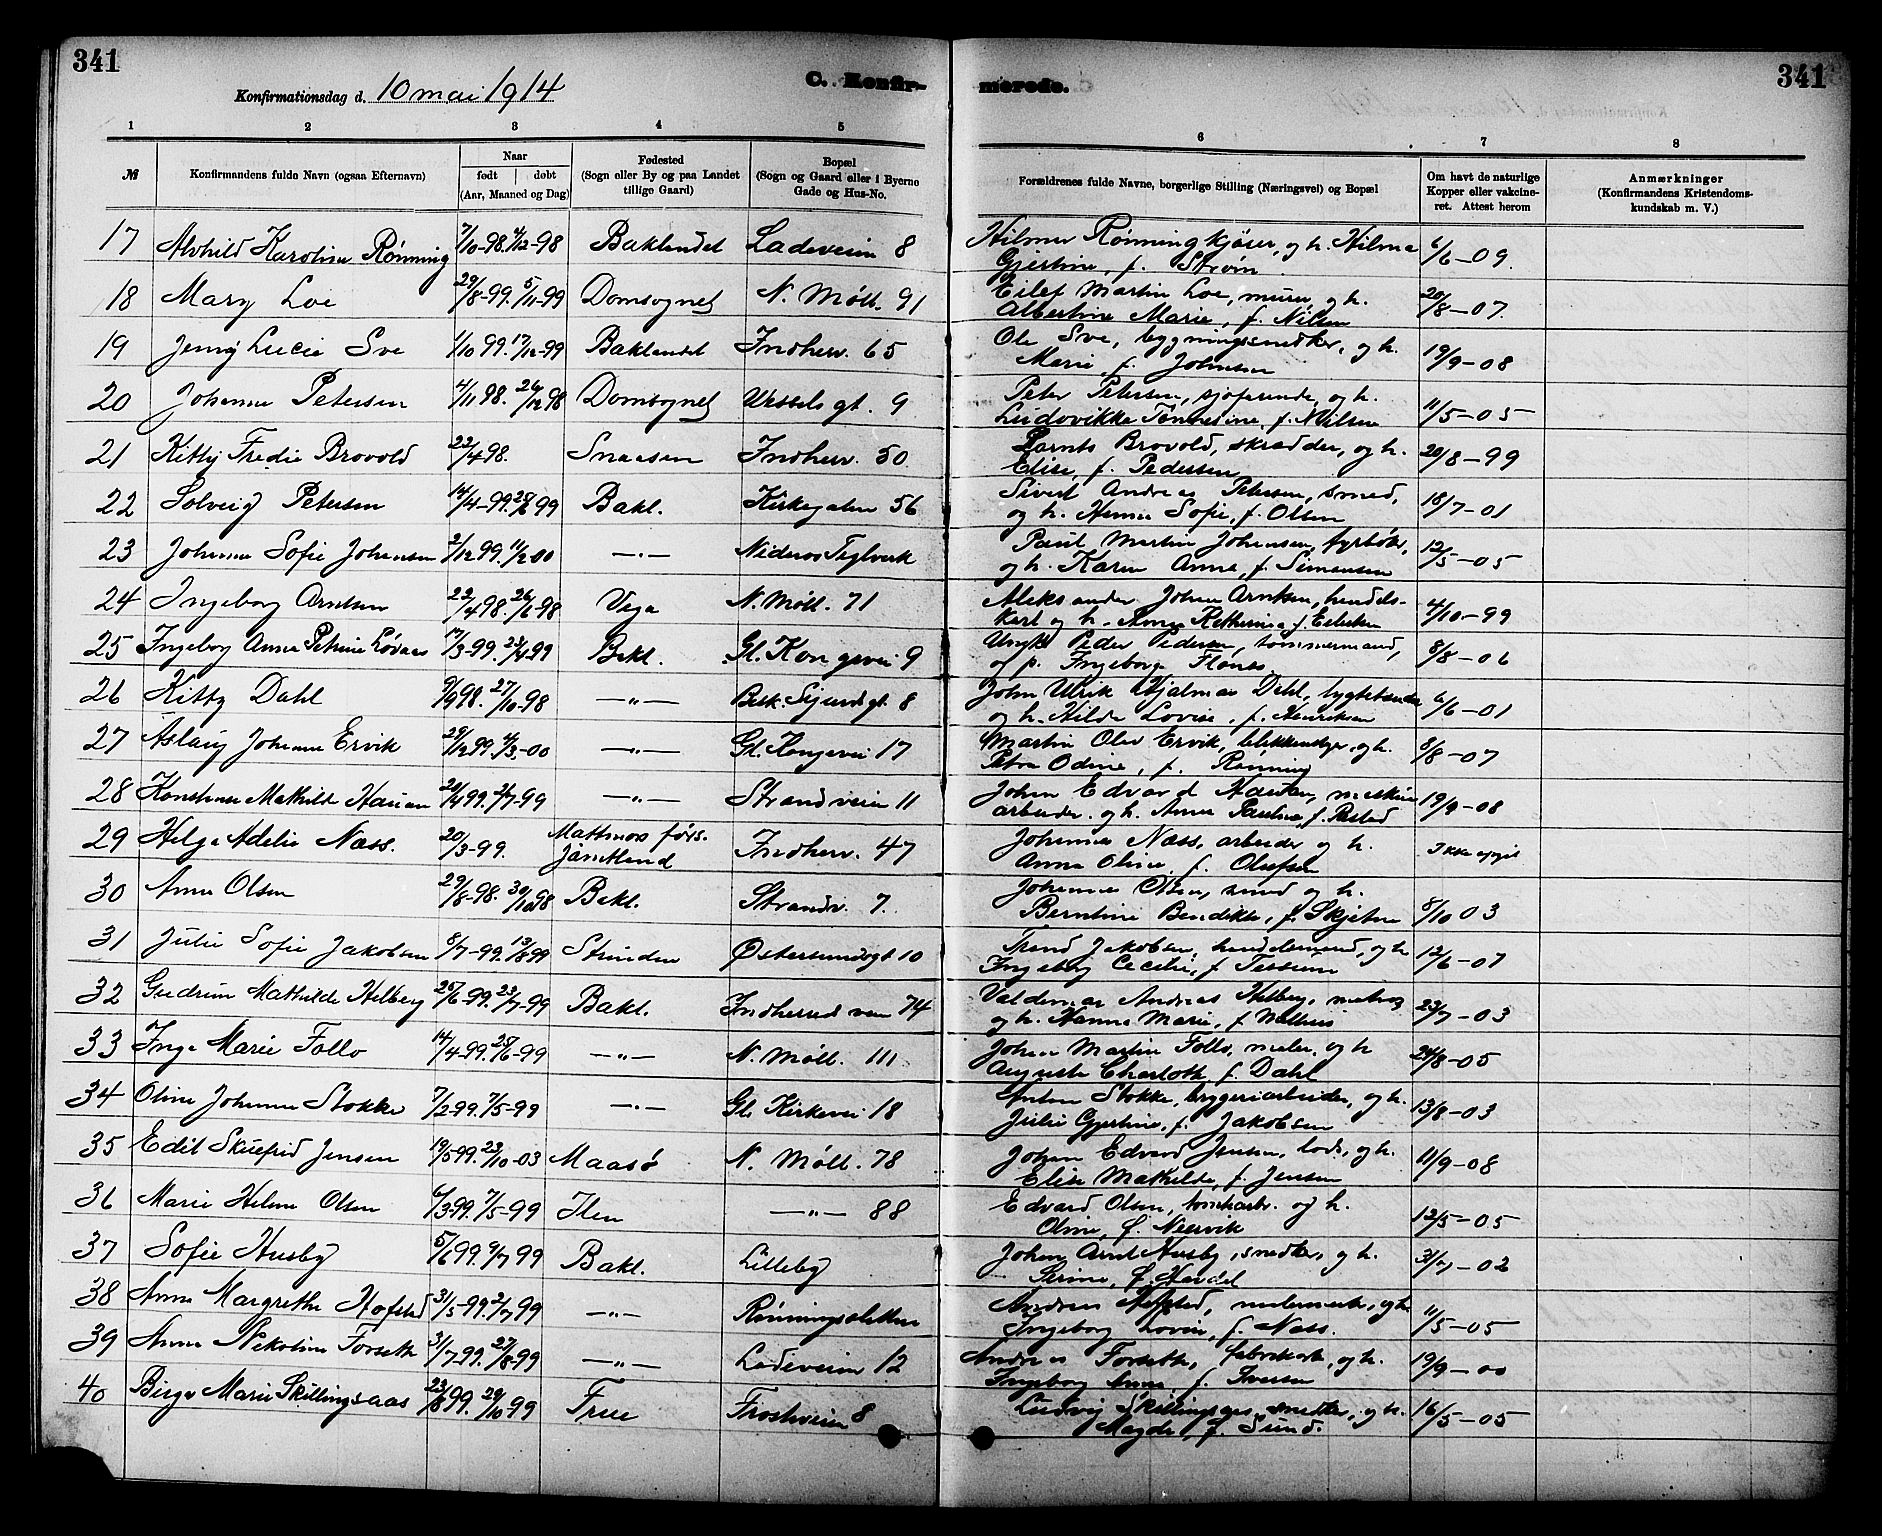 341
341
Konfirmationsdag d. 10 mai 1914
C. Konfir-
merede.
1 2 3 4 5 6 7 8
№
Konfirmandens fulde Navn (ogsaa Efternavn)
Naar
født døbt
(Aar, Maaned og Dag)
Fødested
(Sogn eller By og paa Landet
tillige Gaard)
Bopæl
(Sogn og Gaard eller i Byerne
Gade og Hus-No.
Forældrenes fulde Navne, borgerlige Stilling (Næringsvei) og Bopæl
Om havt de naturlige
Kopper eller vakcine-
ret. Attest herom
Anmærkninger
(Konfirmandens Kristendoms-
kundskab m. V.)
17 Alvhild Karoline Rønning 7/10-98. 4/12-98 Baklandet Ladeveien 8 Hilmer Rønning kjøser, og h. Hilma 6/6-09.
Gjertine, f. Strøm
18 Mary Loe 29/8-99. 5/11-99 Domsognet N. Møll. 91 Eilef Martin Loe, murer, og h. 20/8-07.
Albertine Marie, f. Nilsen
19 Jenny Lucie Sve 1/10 99. 17/12-99 Baklandet Indherr. 65 Ole Sve, bygningssnedker, og h. 19/9-08
Marie, f. Johnsen
20 Johanne Petersen 4/11 98. 26/12 98 Domsognet Wessels gt. 9 Peter Petersen, sjøfarende, og h. 11/5-05
Ludovikke Tønnesine, f. Nilsen
21 Kitty Fredie Brovold 22/4 98. Snaasen Indherr. 50 Brovold, skrædder, og h. 20/8-99
Elise, f. Pedersen
22 Solveig Petersen 14/4-99. 99 Bakl. Kirkegaten 56 Sivert Andreas Petersen, smed, 18/7-01
og h. Hanna Sofie, f. Olsen
23 Johanne Sofie Johansen 2/12 99. 11/2 00 —"— Nidaros Teglverk Paul Martin Johansen, fyrbøter, 12/5-05
og h. Karen Anna, f. Simonsen
24 Ingeborg Arntsen 22/4 98. 26/6-98 Vega N. Møll. 71 Aleksander Johan Arntsen, handels- 4/10-99
karl og h. Anna
25 Ingeborg Anna Petrine Løvaas 17/3-99. 23/4-99 Bakl. Gl. Kongevei 9 Ungk. Peder Pedersen, tømmermand, 8/8-06
og p. Ingeborg Flønes
26 Kitty Dahl 9/9 98. 27/10-98 —"— Bisk. Sigurdsgt. 8 John Ulrik Hjalmar Dahl, lygtetænder 6/6-01
og h. Hilda Lovise, f. Henriksen
27 Aslaug Johanne Ervik 29/12 99. 4/3-00 —"— Gl. Kongevei 17 Martin Olav Ervik, blikkenslager, og h. 8/8-07
Petra Odine, f. Rønning
28 Konstanse Mathilde Hauan 20/4 99. 2/7-99 —"— Strandveien 11 Johan Edvard Hauan, maskin 19/9-08
arbeider og h. Anna Pauline, f.
29 Helga Adelie Næss. 20/3-99. Mattmars førs. Indherr. 47 Johannes Næss, arbeider og h. Ikke opgit
Jämtland Anna Oline, f. Olufsen
30 Anna Olsen 29/8-98. 30/10 98 Bakl. Strandv. 7. Johannes Olsen, smed og h. 8/10 03
Berntine Bendikte, f. Skjetne
31 Julie Sofie Jakobsen 8/7-99. 13/8 99 Strinden Østersundsgt 10 Trond Jakobsen, handelsmand, og h. 12/6-07
Ingeborg Cecilie, f. Tessem
32 Gudrun Mathilde Helberg 25/6-99. 23/7-99 Bakl. Indherredsveien 74 Valdemar Andreas Helberg, matros 23/7-03
og h. Hanna Marie, f.
33 Inga Marie Follo 14/4-99. 25/6-99 —"— N. Møll. 111 Johan Martin Follo, maler, og h 24/8-05
Augusta Charlotte, f. Dahl
34 Oline Johanne Stokke 7/2-99. 7/5-99 —"— Gl. Kirkevei 18 Anton Stokke, bryggeriarbeider, og h. 13/8-03
Julie Gjertine, f. Jakobsen
35 Edit Skuefrid Jensen 19/5 99. 23/10-03 Maasø N. Møll. 78 Johan Edvard Jensen, lods, og h. 11/9-08
Elise Mathilde, f. Jensen
36 Marie Helene Olsen 6/3-99. 7/5-99 Ilen —"— 88 Edvard Olsen, tomtearb. og h. 12/5-05
Oline, f. Nesvik
37 Sofie Husby 5/6 99. 9/7 99 Bakl. Lilleby Johan Arnt Husby, snedker, og h. 31/7-02
Serine, f. Havdal
38 Anna Margrethe Hofstad 31/5-99. 2/7 99 —"— Rønningsletten Andreas Hofstad, malermester, og h. 11/5-05
Ingeborg Lovise, f. Næss.
39 Anna Nekoline Forseth 31/7-99. 27/8-99 —"— Ladeveien 12 Andreas Forseth, fabrikarb, og h. 19/9-00
Ingeborg Anna f. Iversen
40 Birga Marie Skillingsaas 23/8 99. 29/10-99 Frue Frostaveien 8 Ludvig Skillingsaas, snedker, og h. 16/5-05
Magda, f. Sund.